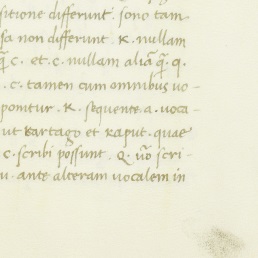 sitione differunt. sono tam-
sa non differunt. K. nullam
q̃ c. et. c. nullam aliã q̃. q.
. c. tamen cum omnibus vo-
ponitur. K. sequente. a. voca-
ut kartago et kaput. quae
c. scribi possunt. Q. ũo scri-
u. ante alteram vocalem in